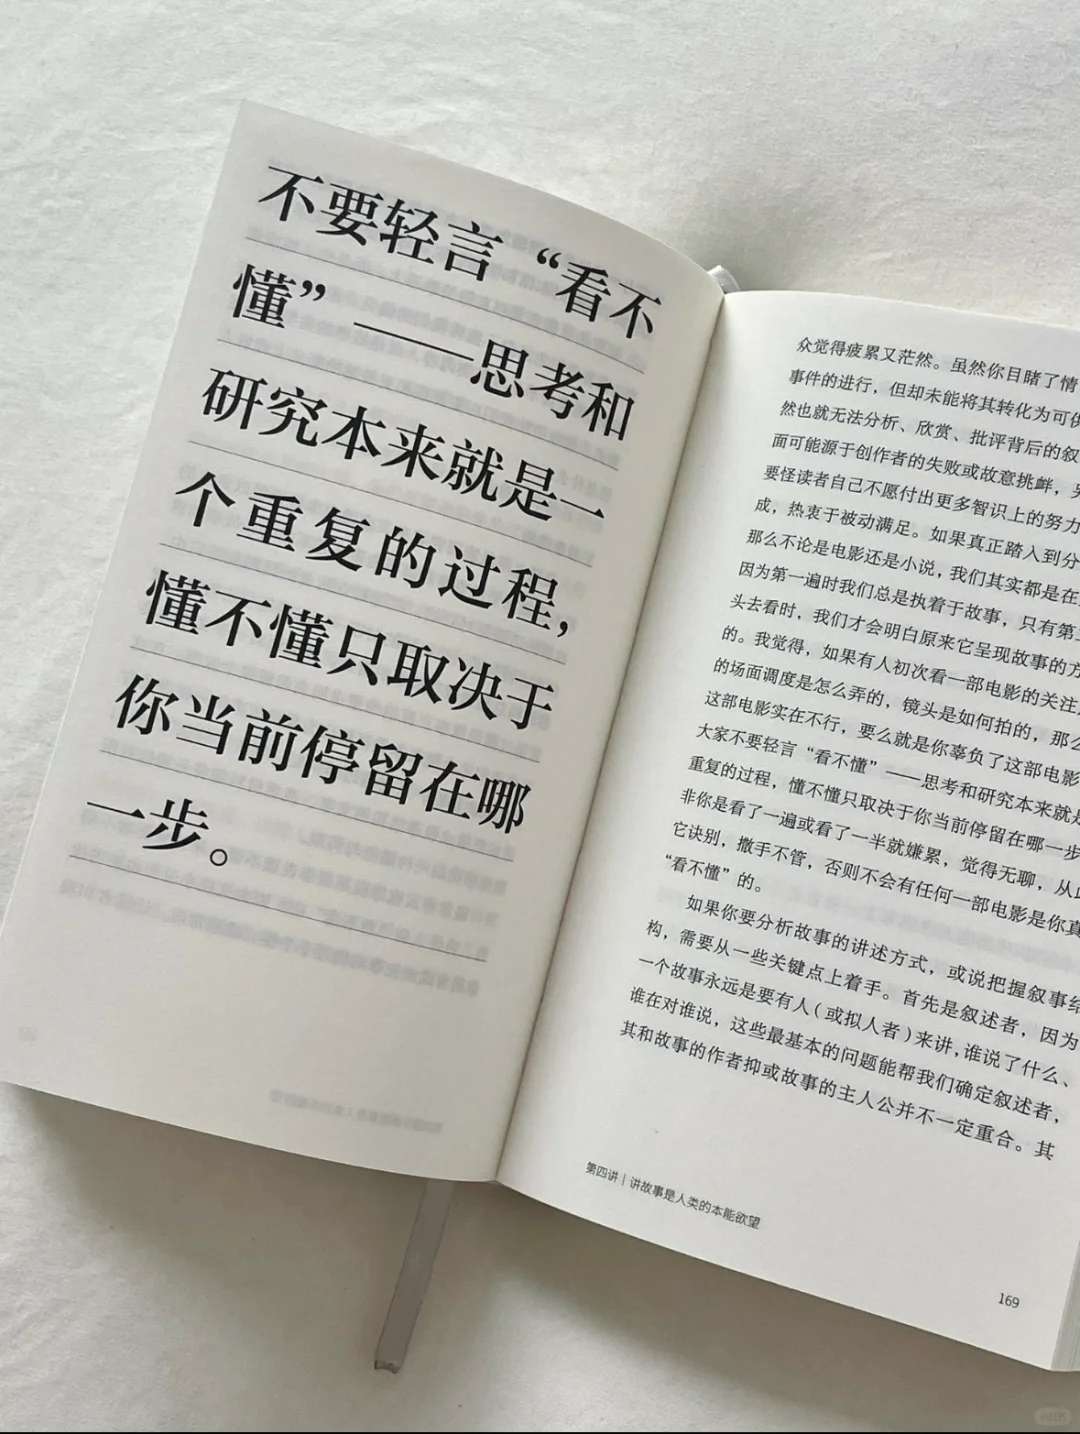 不要轻言“看不
懂”——思考和
研究本来就是一
个重复的过程，
懂不懂只取决于
你当前停留在哪
一步。
众觉得疲累又茫然。虽然你目睹了情
事件的进行，但却未能将其转化为可供
然也就无法分析、欣赏、批评背后的叙
面可能源于创作者的失败或故意挑衅，另
要怪读者自己不愿付出更多智识上的努力
成，热衷于被动满足。如果真正踏入到分
那么不论是电影还是小说，我们其实都是在
因为第一遍时我们总是执着于故事，只有第
头去看时，我们才会明白原来它呈现故事的方
的。我觉得，如果有人初次看一部电影的关注
的场面调度是怎么弄的，镜头是如何拍的，那么
这部电影实在不行，要么就是你辜负了这部电影
大家不要轻言“看不懂”——思考和研究本来就是
重复的过程，懂不懂只取决于你当前停留在哪一步
非你是看了一遍或看了一半就嫌累，觉得无聊，从此
它诀别，撒手不管，否则不会有任何一部电影是你真
“看不懂”的。
如果你要分析故事的讲述方式，或说把握叙事结
构，需要从一些关键点上着手。首先是叙述者，因为
一个故事永远是要有人（或拟人者）来讲，谁说了什么、
谁在对谁说，这些最基本的问题能帮我们确定叙述者，
其和故事的作者抑或故事的主人公并不一定重合。其
第四讲｜讲故事是人类的本能欲望
169